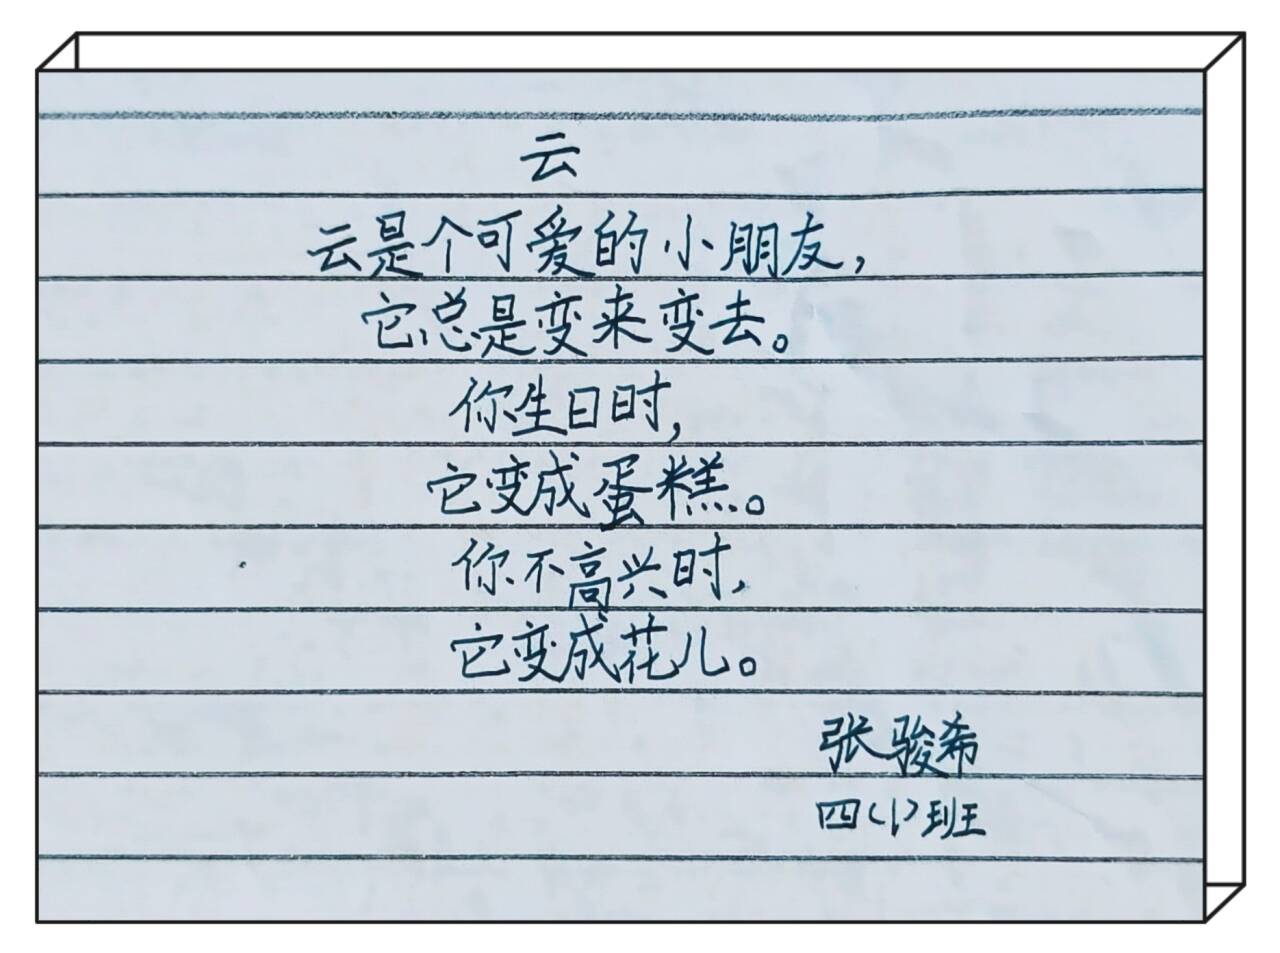 云
云是个可爱的小朋友，
它总是变来变去。
你生日时，
它变成蛋糕。
你不高兴时，
它变成花儿。
张骏希
四(1)班